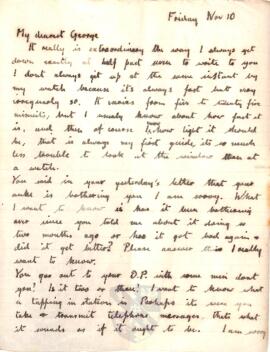 Friday Nov 10
My dearest George
It really is extraordinary the way I always get
down exactly at half past seven to write to you
I dont always get up at the same instant by
my watch because it's always fast but very
irregularly so. It varies from five to twenty five
minutes, but I usually know about how fast it
is, and then of course I know how light it should
be, that is always my first guide, its so much
less trouble to look at the window than at
a watch.
You said in your yesterday's letter that your
ankle is bothering you, I am sorry. What
I want to know is has it been bothering
ever since you told me about it doing so
two months ago or has it got bad again &
did it get better? Please answer this I really
want to know.
You gas out to your O.P. with some men dont
you? Is it two or three? I want to know what
a tapping in station is. Perhaps its were you
take & transmit telephone messages. thats what
it sounds as if it ought to be. I am sorry